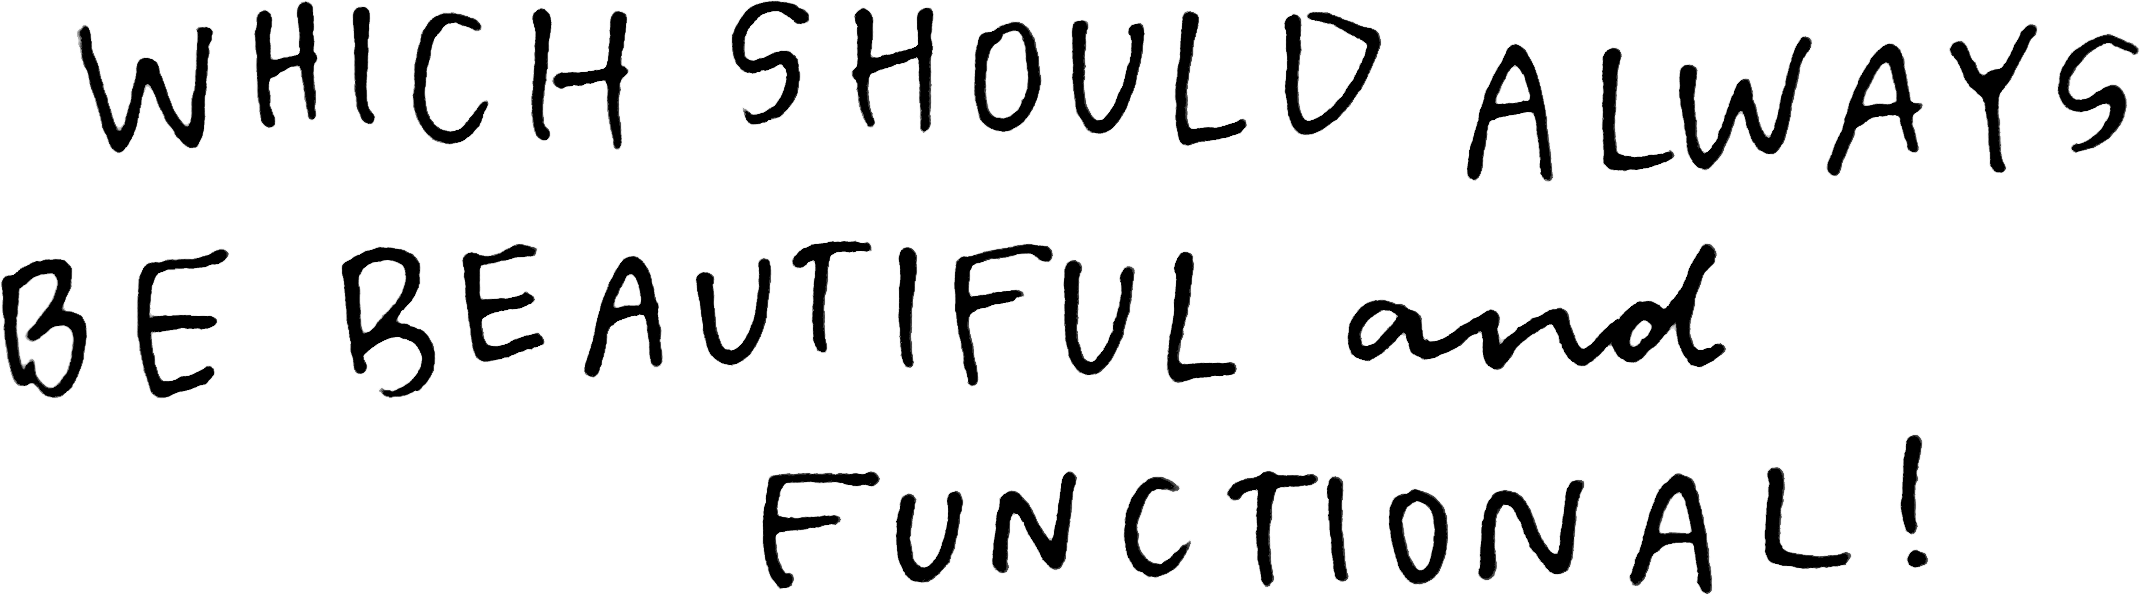 WHICH SHOULD ALWAYS
BE BEAUTIFUL and
FUNCTIONAL!